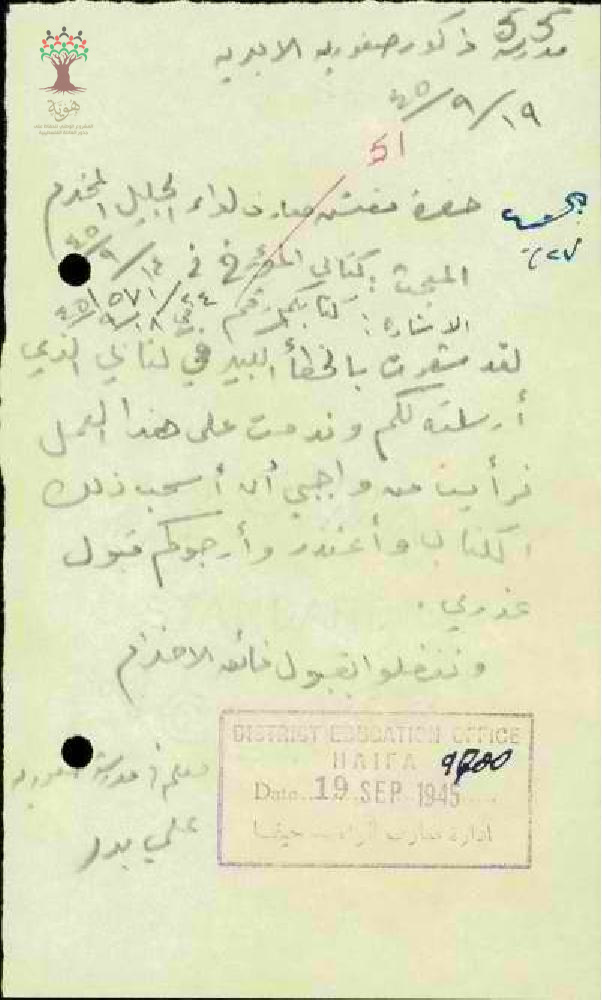 55
مدرسة ذكور صفوريه الاميريه
١٩/٩/٤٥
51
حضرة مفتش معارف لواء الجليل المحترم
المبحث: كتابي المؤرخ في ١٤/٩/٤٥
الاشارة: كتابكم رقم ٢٤/١٥٧١ في ١٨/٩/٤٥
لقد شعرت بالخطأ الكبير في كتابي الذي
أرسلته لكم وندمت على هذا العمل
فرأيت من واجبي أن أسحب ذلك
الكتاب وأعتذر وأرجوكم قبول
عذري.
وتفضلوا بقبول فائق الاحترام
معلم في مدرسة صفوريه
علي بدر
DISTRICT EDUCATION OFFICE
HAIFA
9700
Date 19 SEP 1945
ادارة معارف اللواء حيفا
هوية